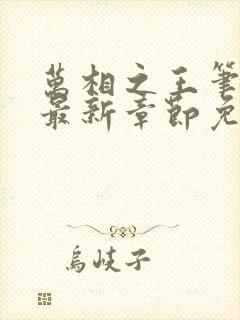 萬相之王筆
最新章節免
烏岐子